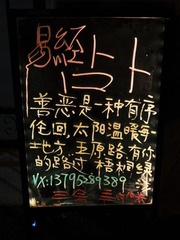 易經占卜
善恶是一种有序
住回太阳温暖每一
地方 五原路有你
的路过 梧桐绿
VX:13795289389